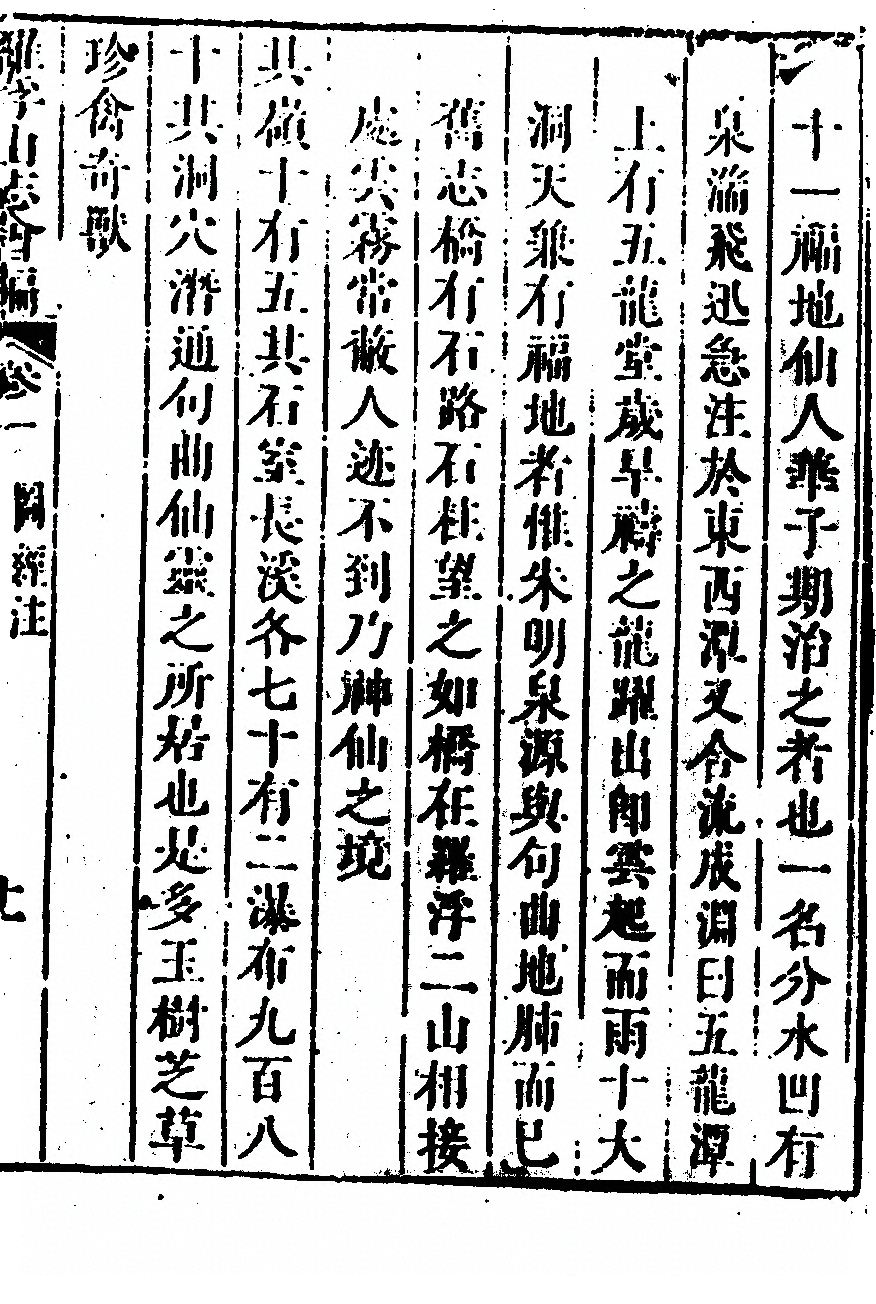 十一福地仙人華子期治之者也一名分水凹有
泉湍飛迅急注於東西潭又合流成淵曰五龍潭
上有五龍堂歲旱禱之龍躍出卽雲起而雨十大
洞天兼有福地者惟朱明泉源與句曲地肺而已
舊志橋有石路石柱望之如橋在羅浮二山相接
處尖霧常蔽人迹不到乃神仙之境
共嶺十有五其石室長溪各七十有二瀑布九百八
十共洞穴潛通句曲仙靈之所居也是多玉樹芝草
珍禽奇獸
羅浮山志會編 卷一 圖經注 七